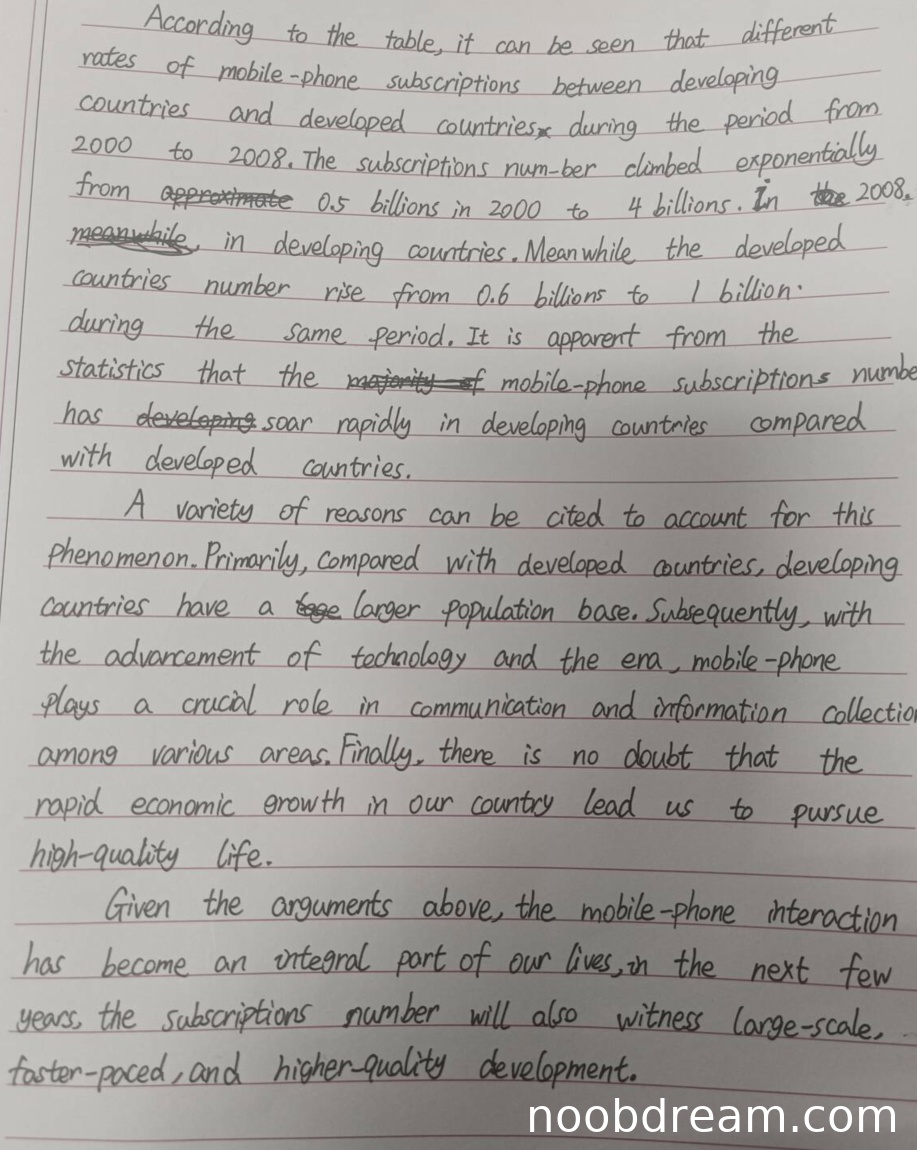 According to the table, it can be seen that different
rates of mobile-phone subscriptions between developing
countries and developed countries during the period from
2000 to 2008. The subscriptions num-ber climbed exponentially
from approximate 0.5 billions in 2000 to 4 billions. In the 2008.
meanwhile, in developing countries. Meanwhile the developed
countries number rise from 0.6 billions to 1 billion.
during the same period. It is apparent from the
statistics that the majority of mobile-phone subscriptions numbe
has developing soar rapidly in developing countries compared
with developed countries.
A variety of reasons can be cited to account for this
phenomenon. Primarily, compared with developed countries, developing
countries have a larger population base. Subsequently, with
the advancement of technology and the era, mobile-phone
plays a crucial role in communication and information collection
among various areas. Finally, there is no doubt that the
rapid economic growth in our country lead us to pursue
high-quality life.
Given the arguments above, the mobile-phone interaction
has become an integral part of our lives, in the next few
years, the subscriptions number will also witness large-scale,
faster-paced, and higher-quality development.
noobdream.com